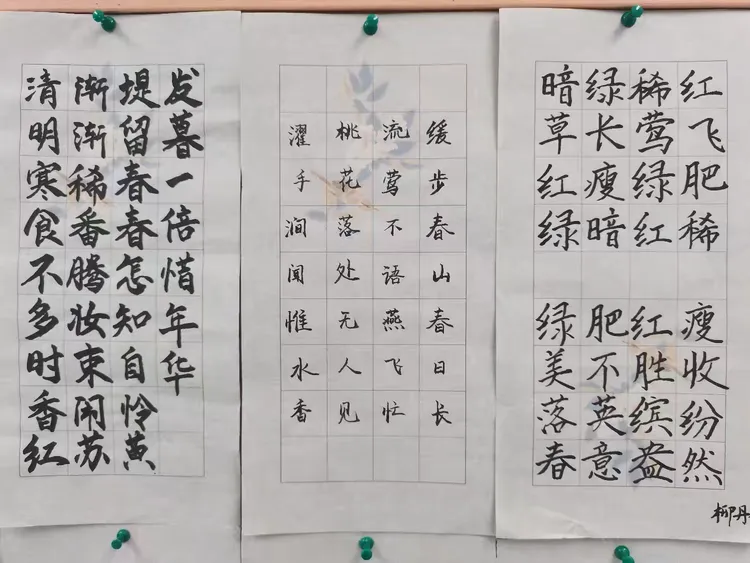 清明寒食不多时香红
渐渐稀番腾妆束闹苏
堤留春春怎知自怜黄
发暮一倍惜年华
缓步春山春日长
流莺不语燕飞忙
桃花落处无人见
濯手涧闻惟水香
暗绿稀红
草长莺飞
红瘦绿肥
绿暗红稀
绿肥红瘦
美不胜收
落英缤纷
春意盎然
柳丹